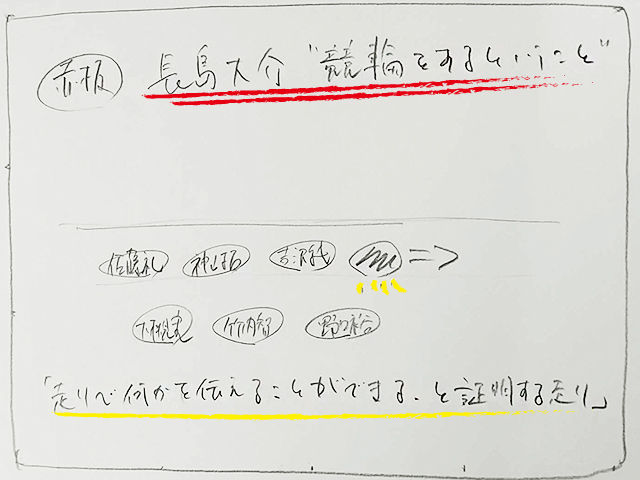 赤板 長島大介 "競輪をするということ"
佐藤礼 神山拓 吉沢純 ⇒
竹内智 野口裕
「走りで何かを伝えることができる、と証明する走り」